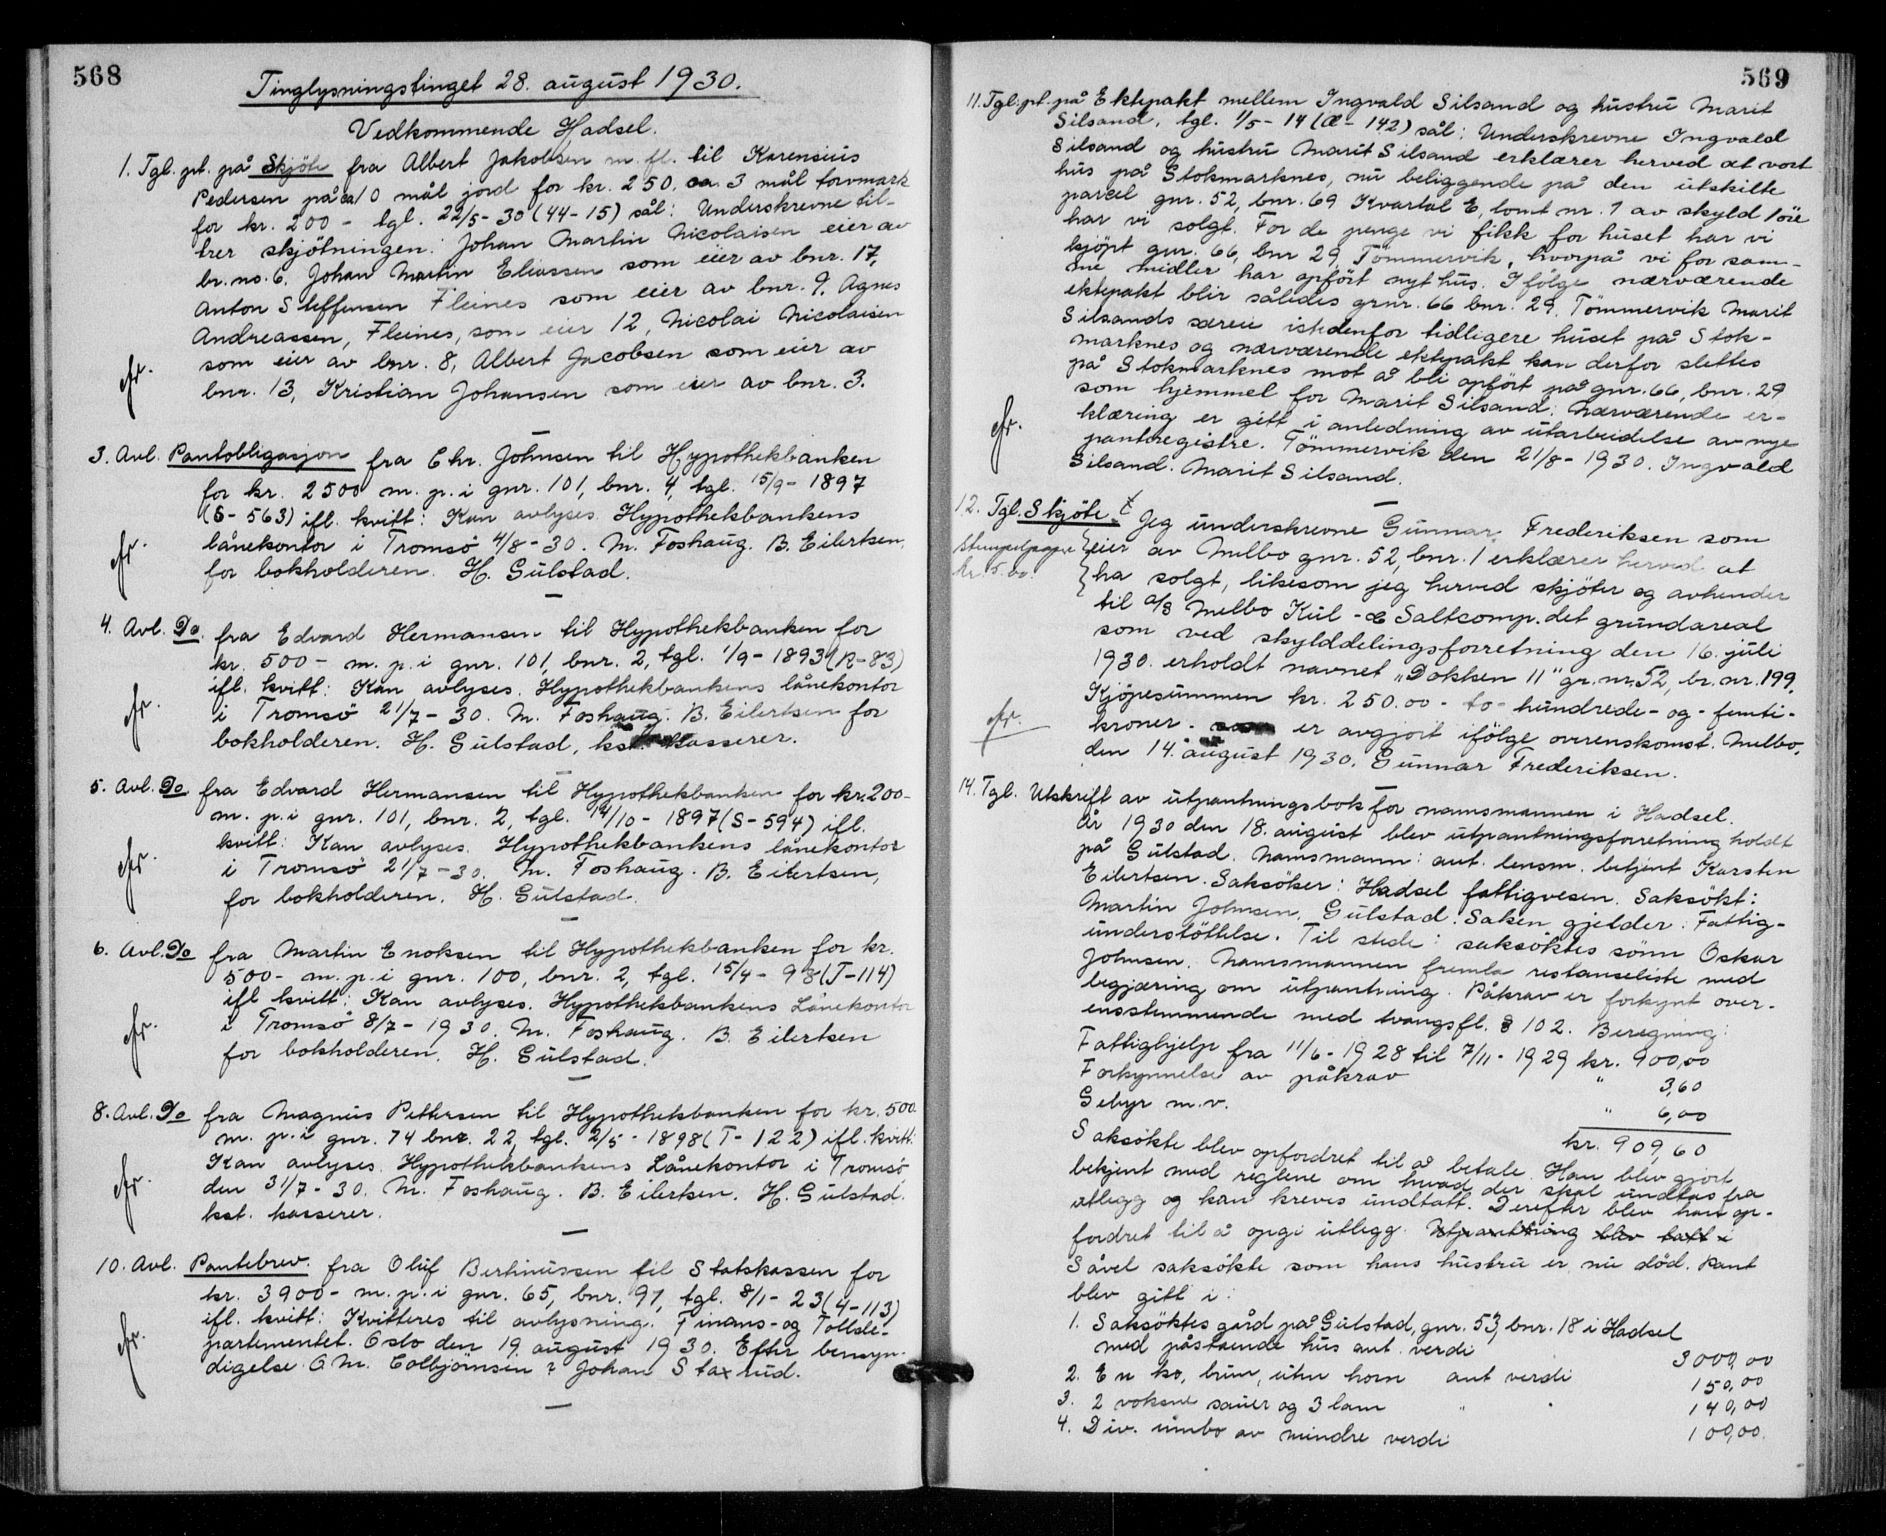 568
Tinglysningstinget 28. august 1930.
Vedkommende Hadsel.
1. Tgl. pt. på Skjöte fra Albert Jakobsen m. fl. til Karensius
Pedersen på ca 10 mål jord for kr. 250. ca. 3 mål torvmark
for kr. 200 - tgl. 22/5-30 (44-15) sål: Underskrevne til-
trer skjötningen: Johan Martin Nicolaisen eier av
br. no. 6. Johan Martin Eliassen som eier av bnr. 17,
Anton Steffensen Fleines som eier av bnr. 9. Agnes
Andreassen, Fleines, som eier 12, Nicolai Nicolaisen
som eier av bnr. 8, Albert Jacobsen som eier av
bnr. 13, Kristian Johansen som eier av bnr. 3.
3. Avl. Pantobligasjon fra Chr. Johnsen til Hypothekbanken
for kr. 2500 m. p. i gnr. 101, bnr. 4, tgl. 15/9-1897
(S-563) ifl. kvitt: Kan avlyses. Hypothekbankens
lånekontor i Tromsö 4/8-30. M. Foshaug. B. Eilertsen,
for bokholderen. H. Gulstad.
4. Avl. Do. fra Edvard Hermansen til Hypothekbanken for
kr. 500- m. p. i gnr. 101, bnr. 2, tgl. 1/9-1893 (R-83)
ifl. kvitt: Kan avlyses. Hypothekbankens lånekontor
i Tromsö 21/7-30. M. Foshaug. B. Eilertsen for
bokholderen. H. Gulstad, kst. kasserer.
5. Avl. Do. fra Edvard Hermansen til Hypothekbanken for kr. 200-
m. p. i gnr. 101, bnr. 2, tgl. 14/10-1897 (S-594) ifl.
kvitt: Kan avlyses. Hypothekbankens lånekontor
i Tromsö 21/7-30. M. Foshaug. B. Eilertsen,
for bokholderen. H. Gulstad.
6. Avl. Do fra Martin Enoksen til Hypothekbanken for kr.
500- m. p. i gnr. 100, bnr. 2, tgl. 15/4-98 (T-114)
ifl kvitt: Kan avlyses. Hypothekbankens Lånekontor
i Tromsö 8/7-1930. M. Foshaug. B. Eilertsen
for bokholderen. H. Gulstad.
8. Avl. Do fra Magnus Pettersen til Hypothekbanken for kr. 500
m. p. i gnr. 74 bnr. 22, tgl. 2/5-1898 (T-122) ifl. kvitt:
Kan avlyses. Hypothekbankens Lånekontor i Tromsö
den 31/7-30. M. Foshaug. B. Eilertsen. H. Gulstad.
kst. kasserer.
10. Avl. Pantebrev. fra Oluf Bertinussen til Statskassen for
kr. 3900- m. p. i gnr. 65, bnr. 97, tgl. 8/1-23 (4-113)
ifl. kvitt: Kvitteres til avlysning. Finans- og Tollde-
partementet. Oslo den 19. august 1930. Efter bemyn-
digelse O M. Colbjörnsen ? Johan Staxrud.
569
11. Tgl. pt. på Ektepakt mellem Ingvald Silsand og hustru Marit
Silsand, tgl. 1/5-14 (Æ-142) sål: Underskrevne Ingvald
Silsand og hustru Marit Silsand erklærer herved at vort
hus på Stokmarknes, nu beliggende på den utskilte
parcel gnr. 52, bnr. 69 Kvartal E, tomt nr. 1 av skyld 1 öre
har vi solgt. For de penge vi fikk for huset har vi
kjöpt gnr. 66, bnr 29, Tömmervik, hvorpå vi for sam-
me midler har opfört nyt hus. Ifölge nærværende
ektepakt blir således grnr. 66 bnr. 29. Tömmervik Marit
Silsands særeie istedenfor tidligere huset på Stok-
marknes og nærværende ektepakt kan derfor slettes
på Stokmarknes mot at bli opfört på gnr. 66, bnr. 29
som hjemmel for Marit Silsand. Nærværende er-
klæring er gitt i anledning av utarbeidelse av nye
panteregistre. Tömmervik den 21/8-1930. Ingvald
Silsand. Marit Silsand.
12. Tgl. Skjöte. Jeg underskrevne Gunnar Frederiksen som
Stempelpapir kr. 5.00. eier av Melbo gnr. 52, bnr. 1 erklærer herved at
ha solgt, likesom jeg herved skjöter og avhender
til A/S Melbo Kul- & Saltcomp. det grundareal
som ved skylddelingsforretning den 16. juli
1930. erholdt navnet "Dokken 11" gr. nr. 52, br. nr. 199.
Kjöpesummen kr. 250.00 - to- hundrede- og- femti-
kroner - er avgjort ifölge overenskomst. Melbo,
den 14. august 1930. Gunnar Frederiksen.
14. Tgl. Utskrift av utpantningsbok for namsmannen i Hadsel.
År 1930 den 18. august blev utpantningsforretning holdt
på Gulstad. Namsmann: aut. lensm. betjent Karsten
Eilertsen. Saksöker: Hadsel fattigvesen. Saksökt:
Martin Johnsen, Gulstad. Saken gjelder: Fattig-
understöttelse. Til stede: saksöktes sönn Oskar
Johnsen. Namsmannen fremla restanseliste med
begjæring om utpantning. Påkrav er forkynt over-
ensstemmende med tvangsfl. § 102. Beregning:
Fattighjelp fra 11/6-1928 til 7/11-1929 kr. 900,00
Forkynnelse av påkrav " 3,60
Gebyr m.v. " 6,00
kr. 909,60
Saksökte blev opfordret til å betale. Han blev gjort
bekjent med reglene om hvad der skal undtas fra
utlegg og kan kreves undtatt. Derefter blev han op-
fordret til å opgi utlegg. Utpantning blev tatt i
Såvel saksökte som hans hustru er nu död. Pant
blev gitt i:
1. Saksöktes gård på Gulstad, gnr. 53, bnr. 18 i Hadsel
med påstående hus ant. verdi 3000,00
2. En ko, brun, uten horn ant verdi 150,00
3. 2 voksne sauer og 3 lam " 140,00
4. Div. innbo av mindre verdi 100,00.